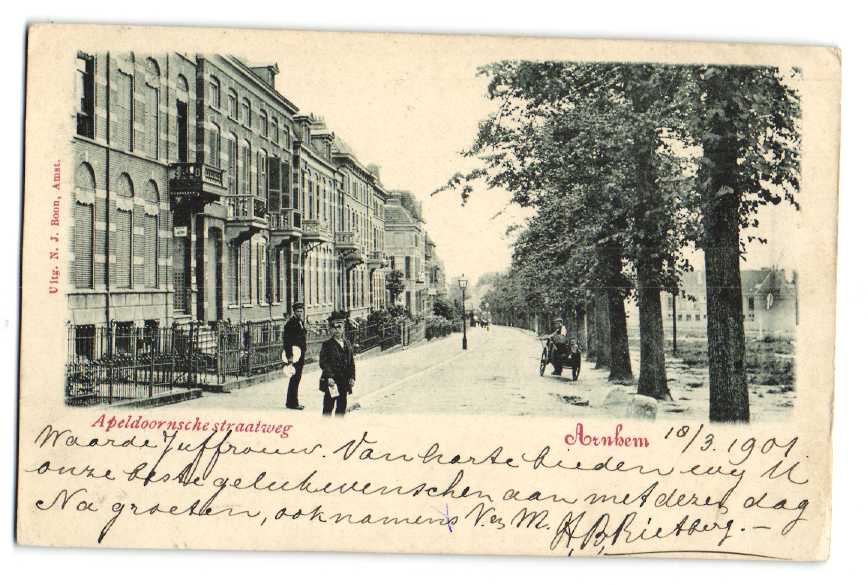 Uitg. N. J. Boon, Amst.
Apeldoornsche straatweg
Arnhem 18/3. 1901.
Waarde Juffrouw. Van harte bieden wy U
onze beste gelukwenschen aan met dezen dag
Na groeten, ook namens V. en M. H. B. Rietberg. -